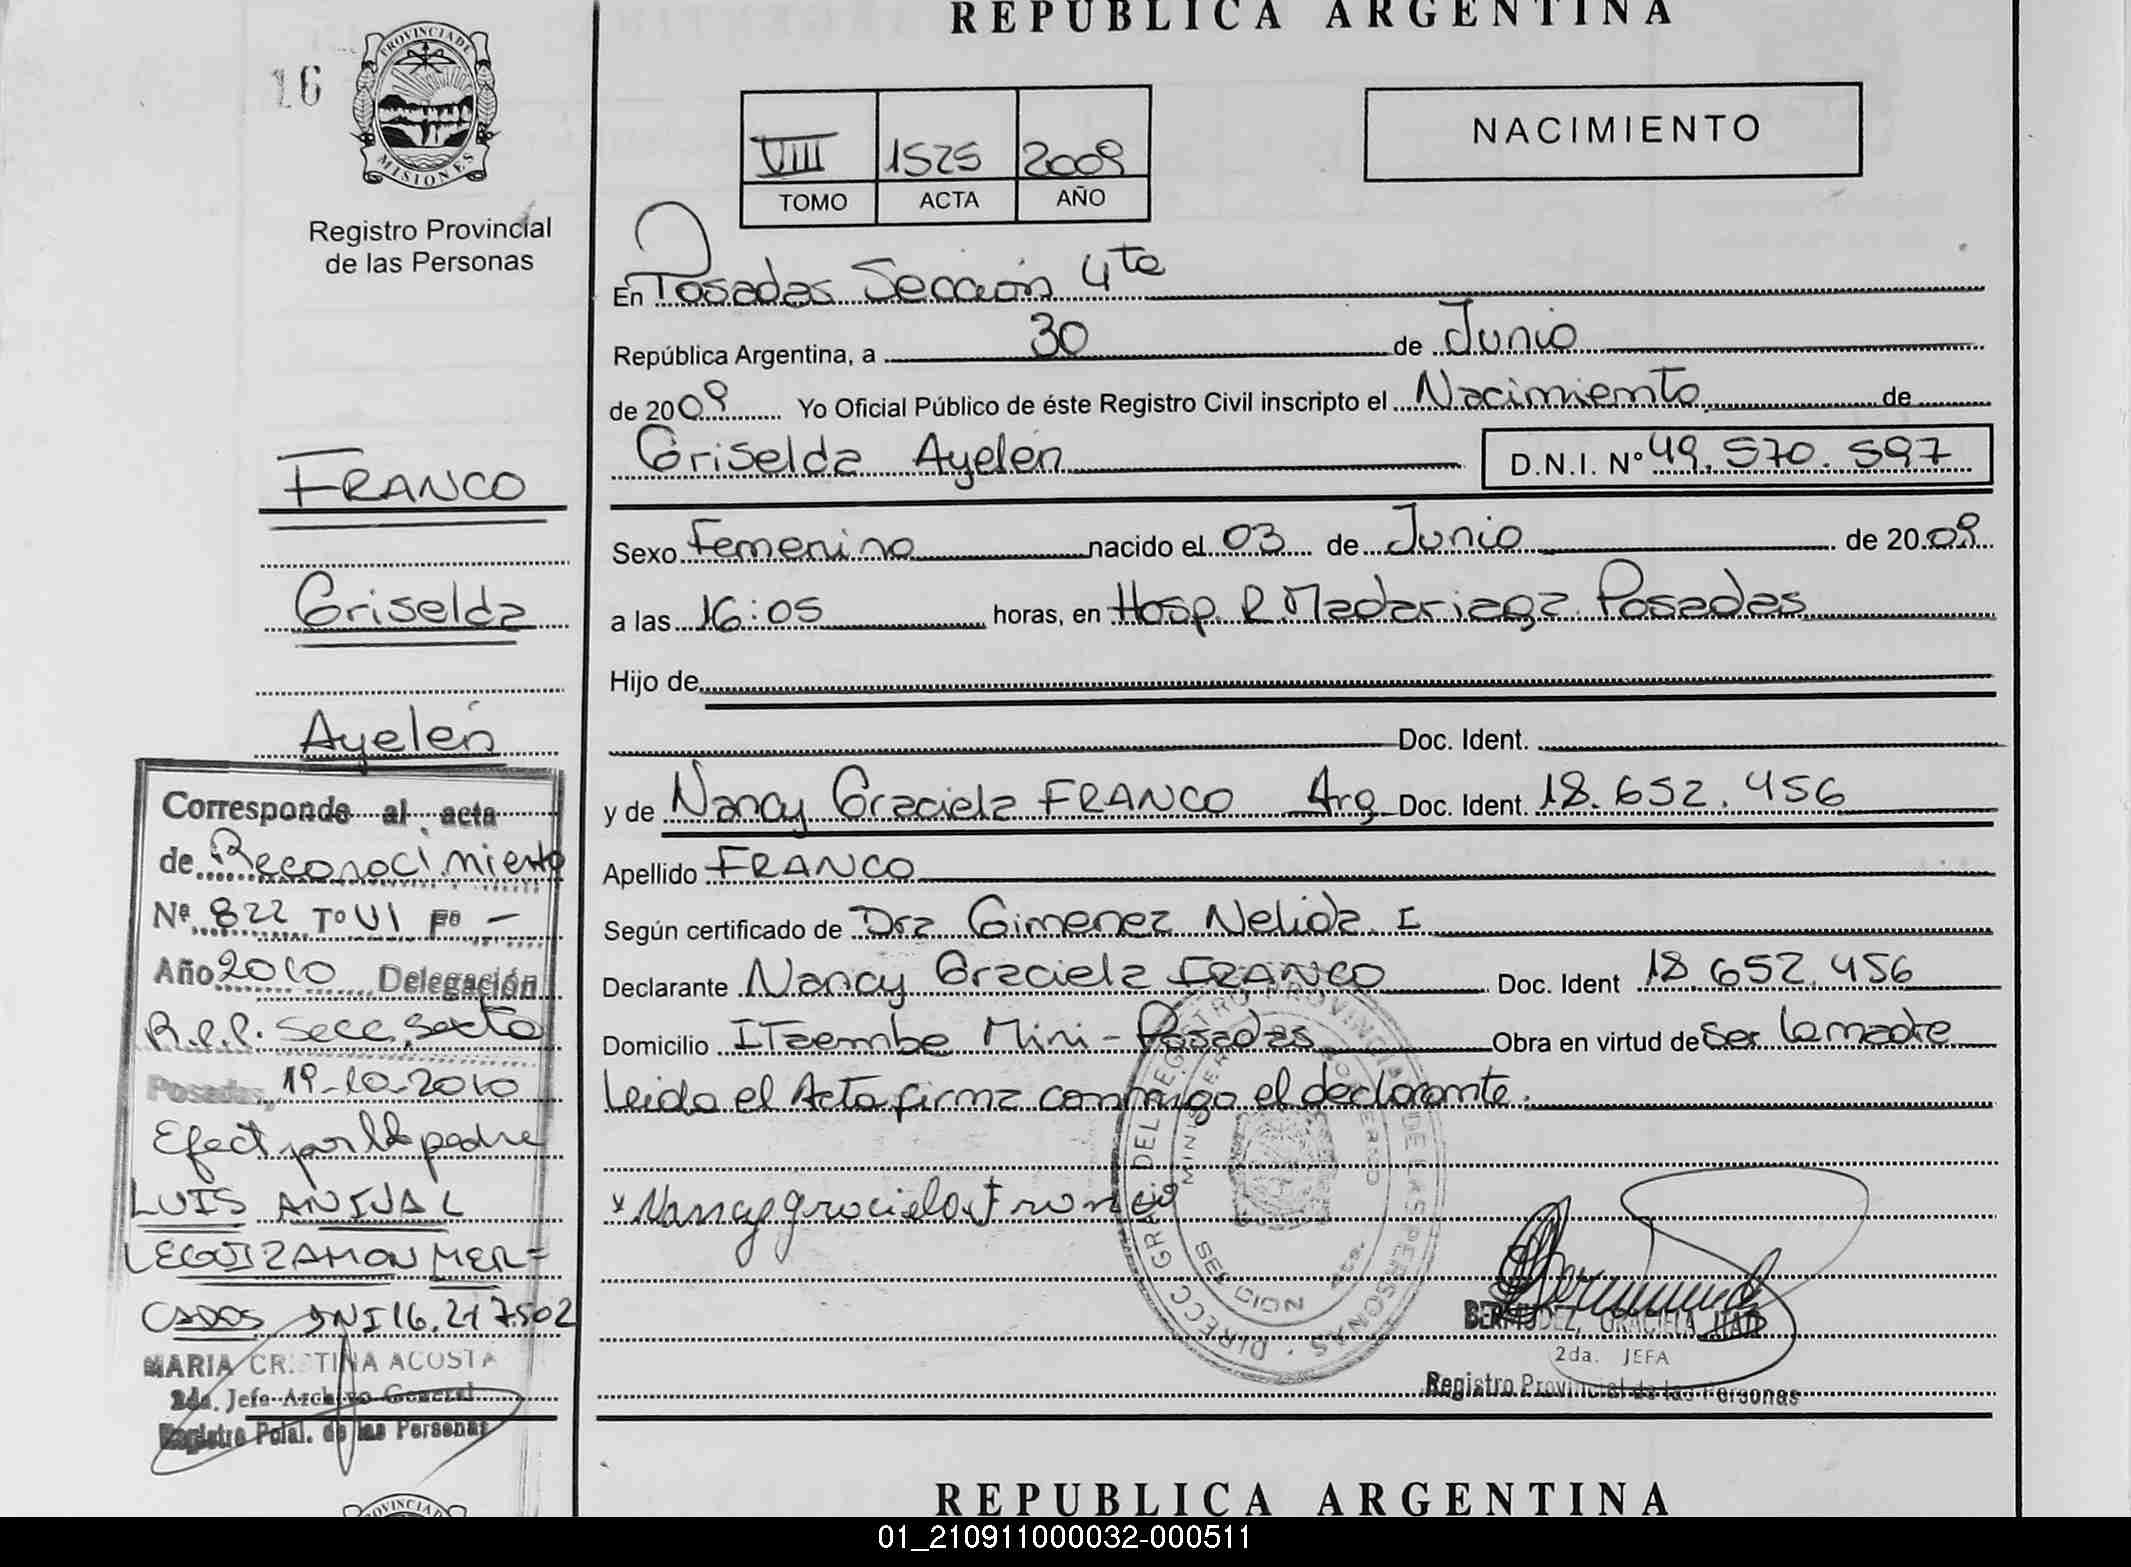 REPUBLICA ARGENTINA
16
PROVINCIA DE
MISIONES
Registro Provincial
de las Personas
VIII 1525 2009
TOMO ACTA AÑO
NACIMIENTO
En Posadas Sección 4ta
República Argentina, a 30 de Junio
de 2009 Yo Oficial Público de éste Registro Civil inscripto el Nacimiento de
Griselda Ayelén D.N.I. Nº 49.570.597
Sexo Femenino nacido el 03 de Junio de 2009
a las 16:05 horas, en Hosp. R. Madariaga. Posadas
Hijo de
Doc. Ident.
y de Nancy Graciela FRANCO Arg Doc. Ident. 18.652.456
Apellido FRANCO
Según certificado de Dra Gimenez Nelida. I
Declarante Nancy Graciela FRANCO Doc. Ident 18.652.456
Domicilio ITaembe Mini - Posadas Obra en virtud de ser la madre
Leida el Acta firma conmigo el declarante.
x Nancy graciela Franco
BERMUDEZ, GRACIELA
2da. JEFA
Registro Provincial de las Personas
FRANCO
Griselda
Ayelén
Corresponde al acta
de Reconocimiento
Nº 822 Tº VI Fº -
Año 2010 Delegación
R.P.P. Secc. Sexta
Posadas, 19-10-2010
Efect por el padre
LUIS ANIVAL
LEGUIZAMON MER=
CADOS DNI 16.217502
MARIA CRISTINA ACOSTA
2da. Jefe Archivo General
Registro Pcial. de las Personas
DIRECC GRAL DEL REGISTRO PROVINCIAL DE LAS PERSONAS
SECCION
REPUBLICA ARGENTINA
01_210911000032-000511